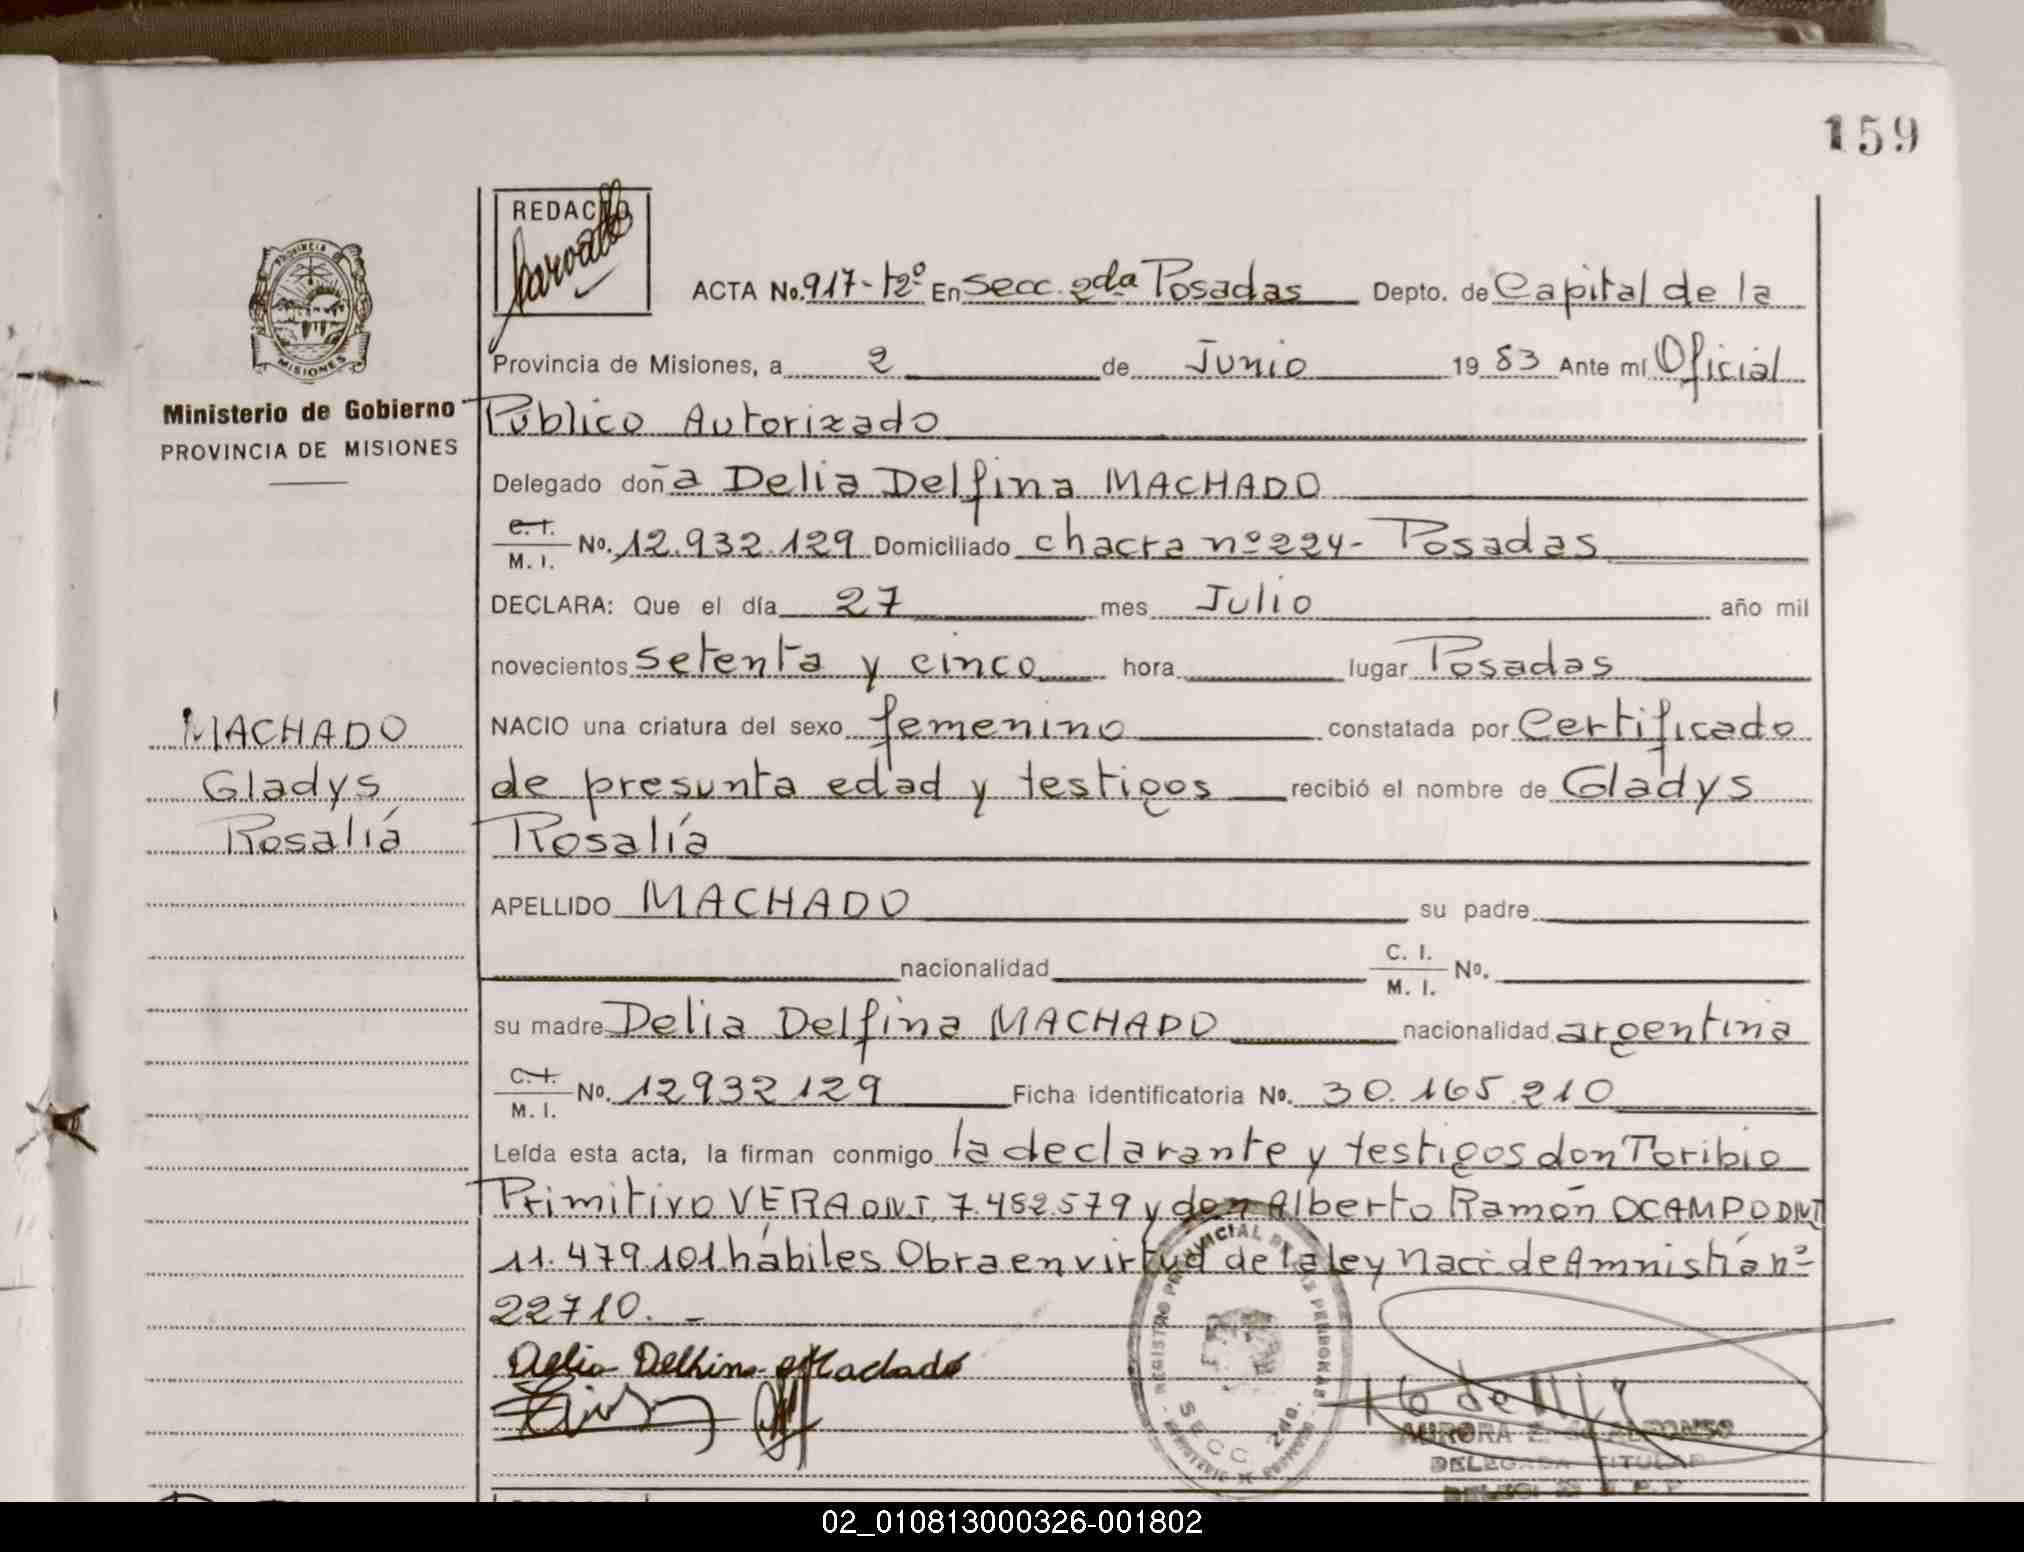 159
REDACTO
PROVINCIA
MISIONES
ACTA No. 917-tº2º En Secc. 2da Posadas Depto. de Capital de la
Provincia de Misiones, a 2 de Junio 1983 Ante mí Oficial
Ministerio de Gobierno
PROVINCIA DE MISIONES
Público Autorizado
Delegado doña Delia Delfina MACHADO
C. I. M. I. No. 12.932.129 Domiciliado chacra nº 224 - Posadas
DECLARA: Que el día 27 mes Julio año mil
novecientos setenta y cinco hora lugar Posadas
MACHADO
Gladys
Rosalía
NACIO una criatura del sexo femenino constatada por Certificado
de presunta edad y testigos recibió el nombre de Gladys
Rosalía
APELLIDO MACHADO su padre
nacionalidad C. I. M. I. No.
su madre Delia Delfina MACHADO nacionalidad argentina
C. I. M. I. No. 12932129 Ficha identificatoria No. 30.165.210
Leída esta acta, la firman conmigo la declarante y testigos don Toribio
Primitivo VERA DN.I. 7.452.579 y don Alberto Ramón OCAMPO DNI
11.479.101 hábiles. Obra en virtud de la ley Nac. de Amnistía nº
22710. -
Delia Delhina Machado
REGISTRO PROVINCIAL DE LAS PERSONAS
SECC. 2da.
AURORA E. de ALFONSO
DELEGADA TITULAR
02_010813000326-001802